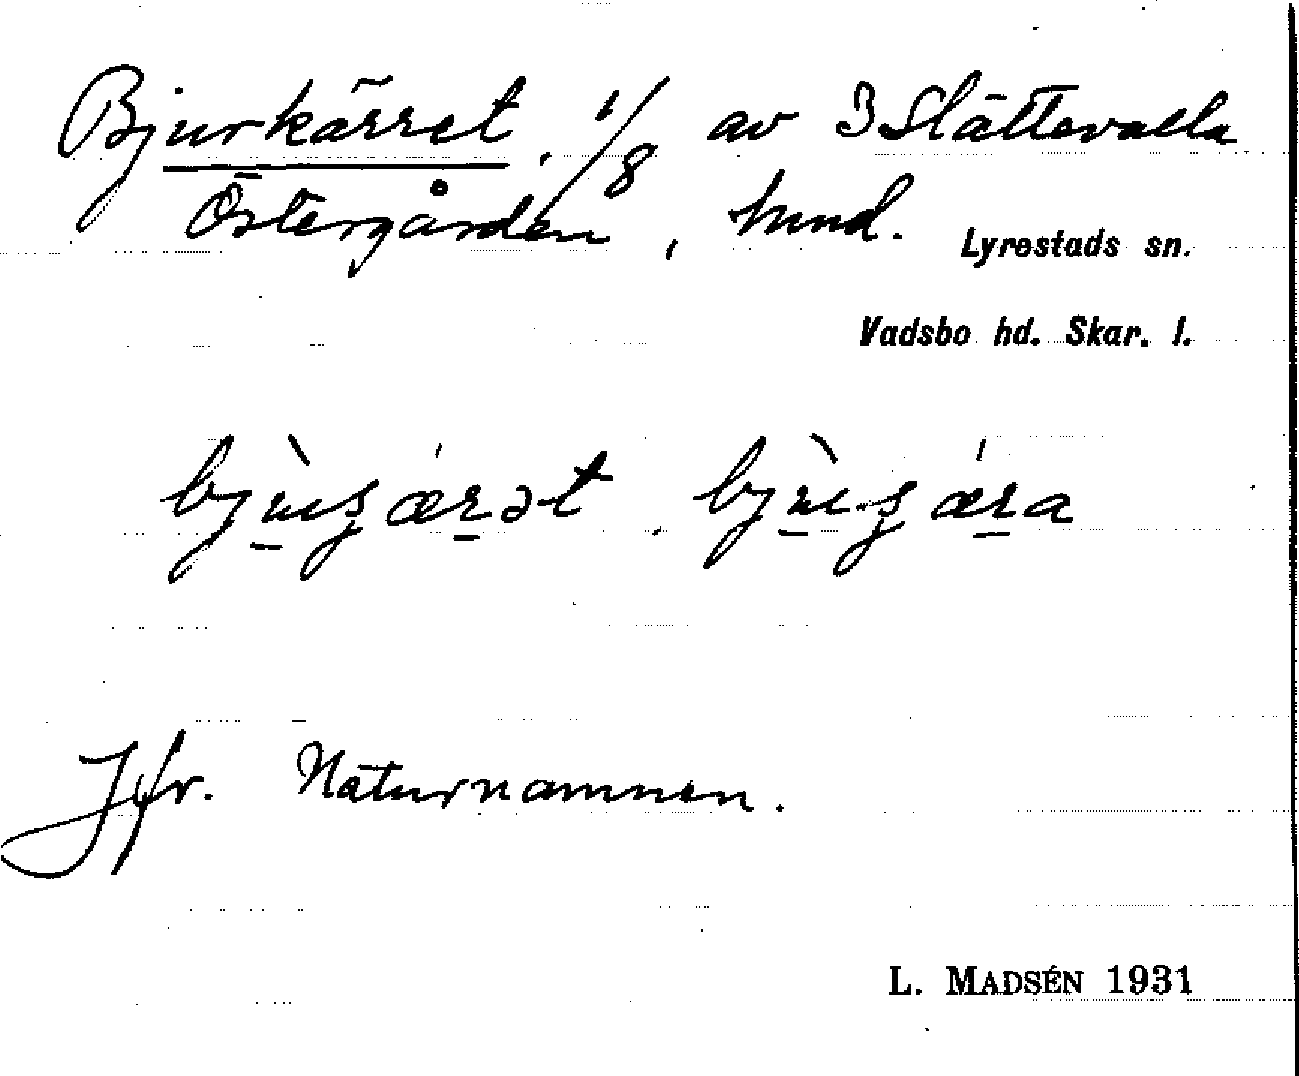 Bjurkärret, 1/8 av 3 Slättevalla
Östergården, hmnd.
Lyrestads sn.
Vadsbo hd. Skar. l.
Jfr. Naturnamnen.
L. MADSÉN 1931